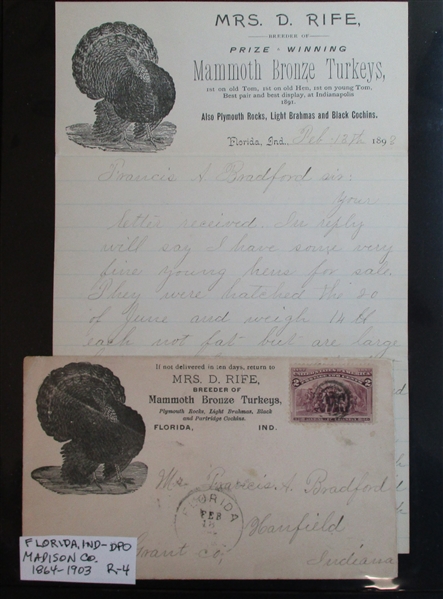 MRS. D. RIFE,
BREEDER OF
PRIZE-WINNING
Mammoth Bronze Turkeys,
1st on old Tom, 1st on old Hen, 1st on young Tom.
Best pair and best display, at Indianapolis
1891.
Also Plymouth Rocks, Light Brahmas and Black Cochins.
Florida, Ind. Feb. 13th 189
Francis A Bradford sir:
Your
letter received. In reply
will say I have some very
fine young hens for sale.
They were hatched the 20
of June and weigh 14 lb
each not fat but are large
If not delivered in ten days, return to
MRS. D. RIFE,
BREEDER OF
Mammoth Bronze Turkeys,
Plymouth Rocks, Light Brahmas, Black
and Partridge Cochins.
FLORIDA, IND.
Francis A. Bradford
FLORIDA
FEB
Hanfield
Grant Co,
Indiana
FLORIDA, IND-DPO
MADISON CO.
1864-1903 R-4